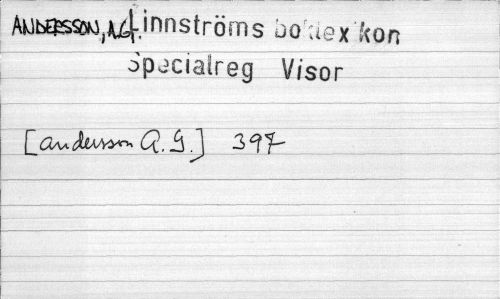 ANDERSSON, A.G. Linnströms boklexikon
Specialreg Visor
[Andersson A. G.] 397